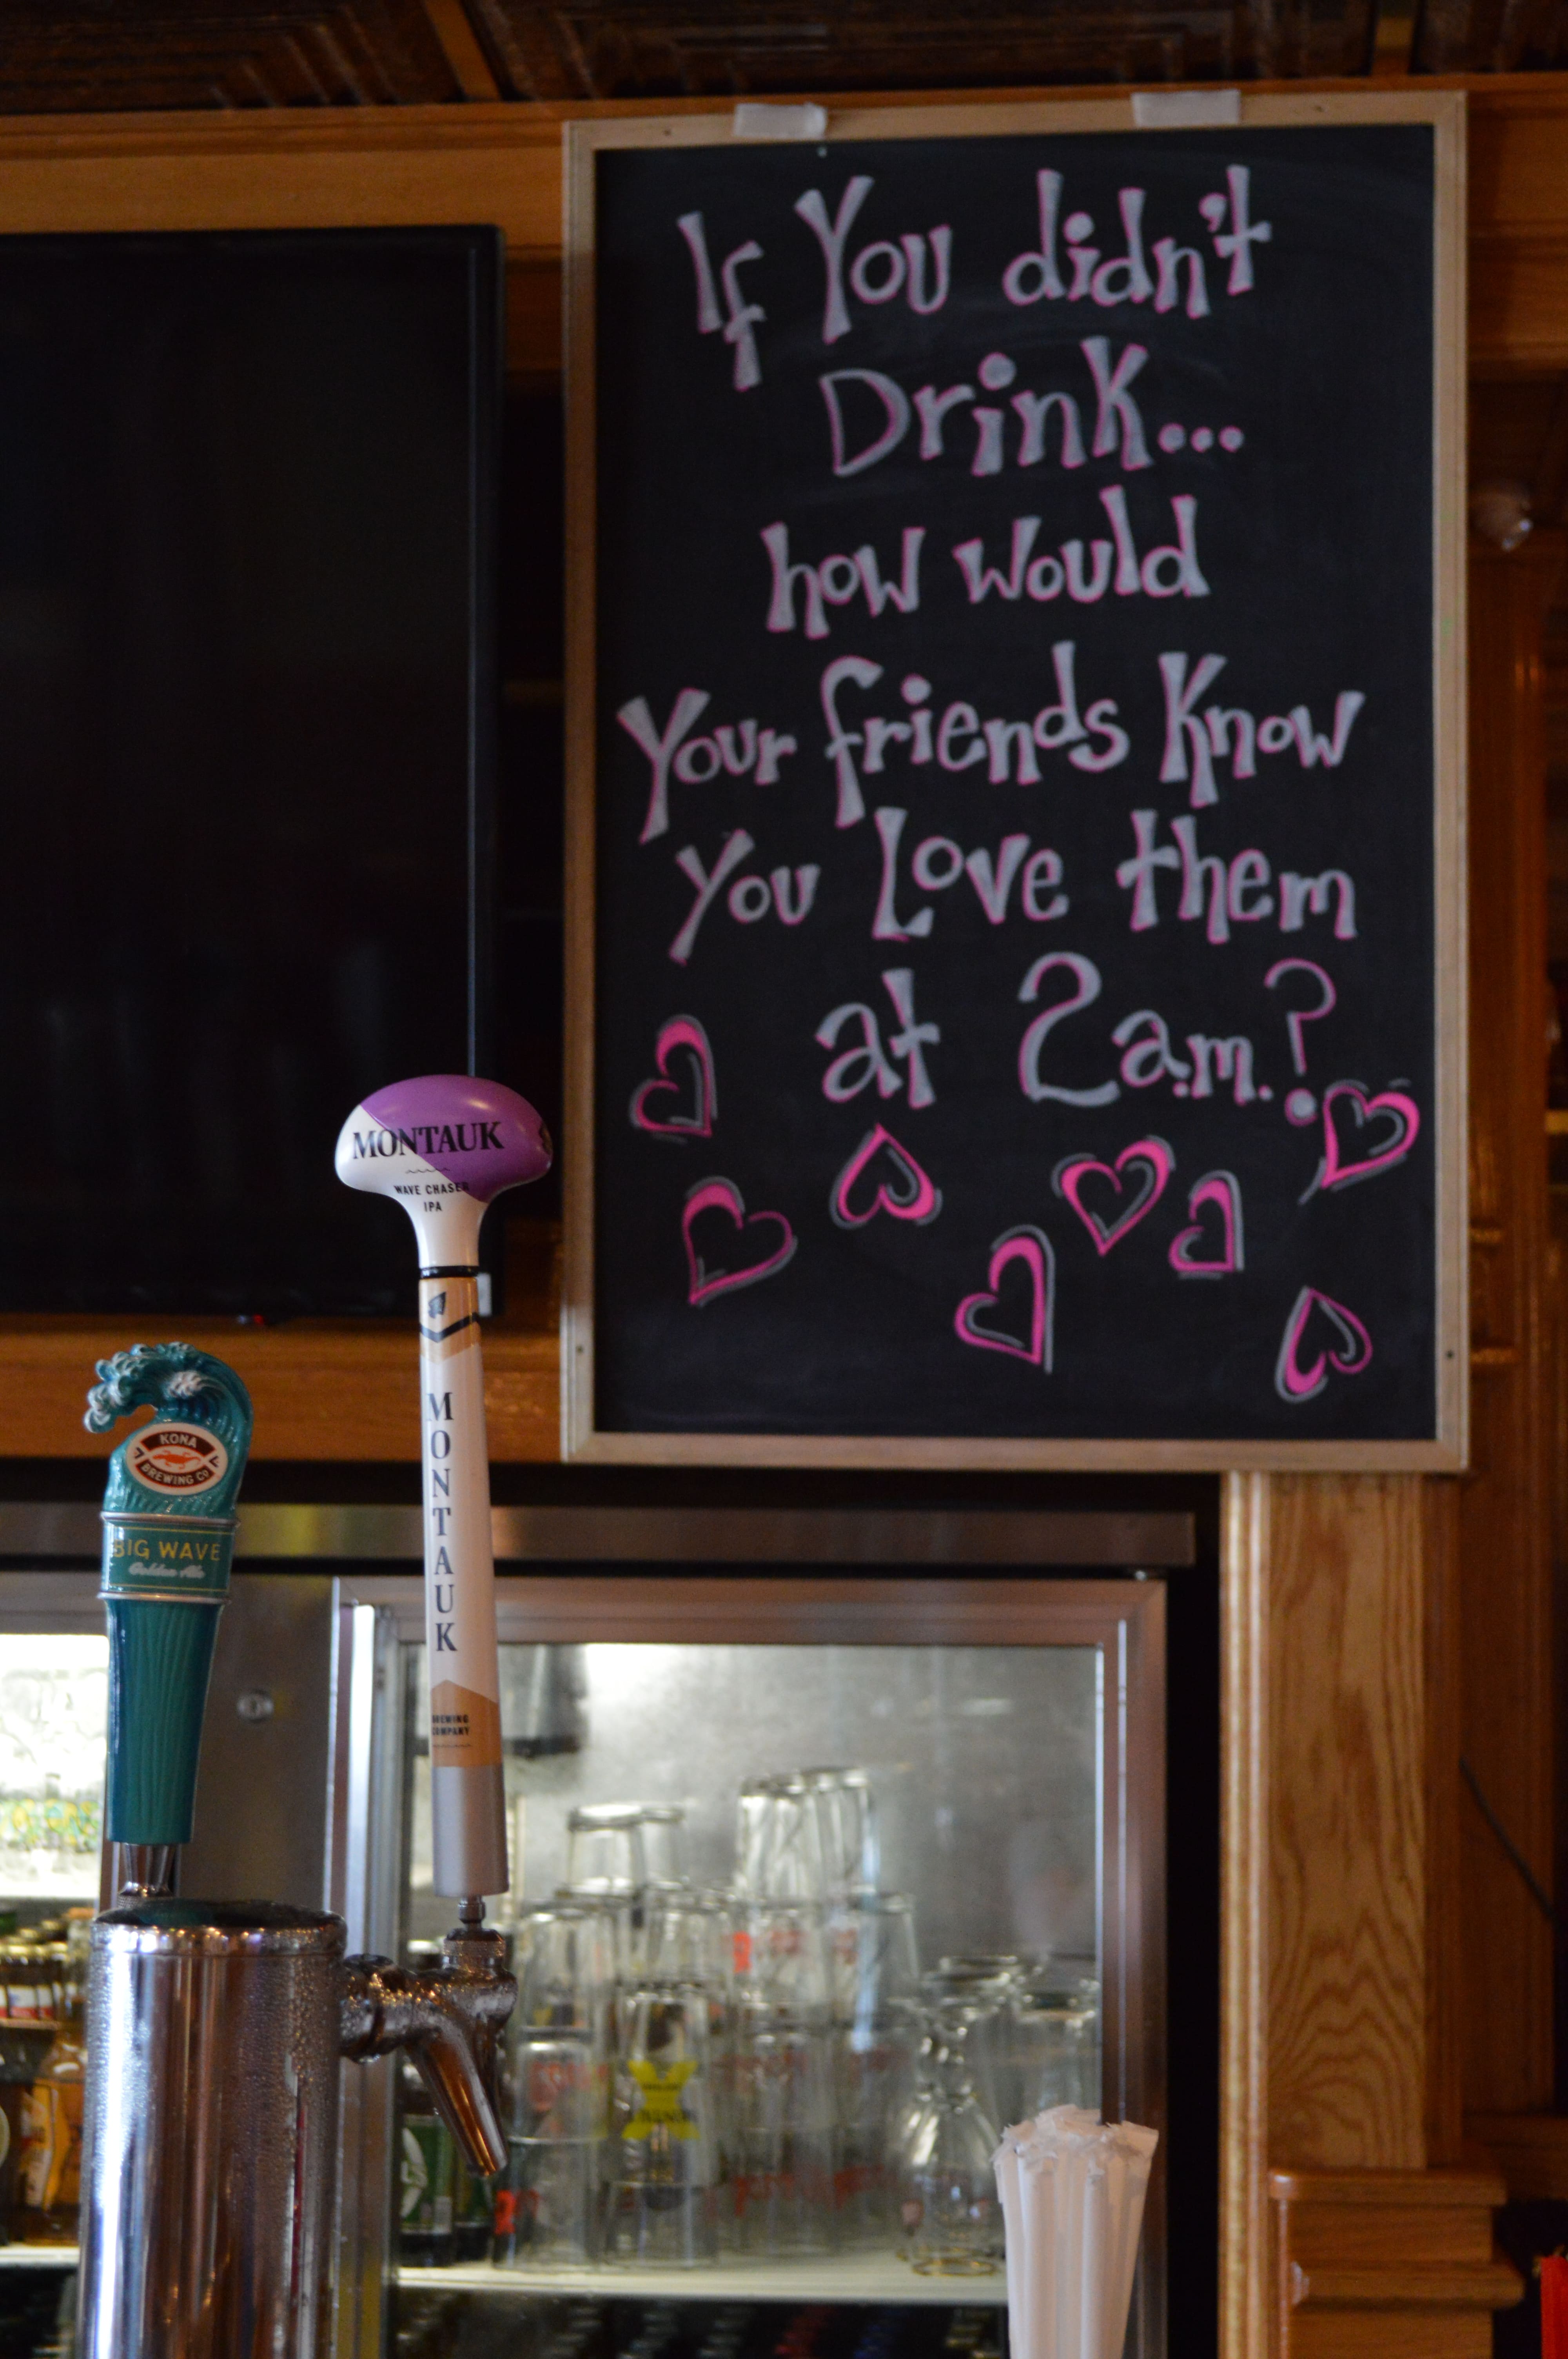 If You didn't
Drink...
how would
Your friends Know
You Love them
at 2a.m.?
MONTAUK
WAVE CHASER
IPA
MONTAUK
BREWING
COMPANY
KONA
BREWING CO
BIG WAVE
Golden Ale